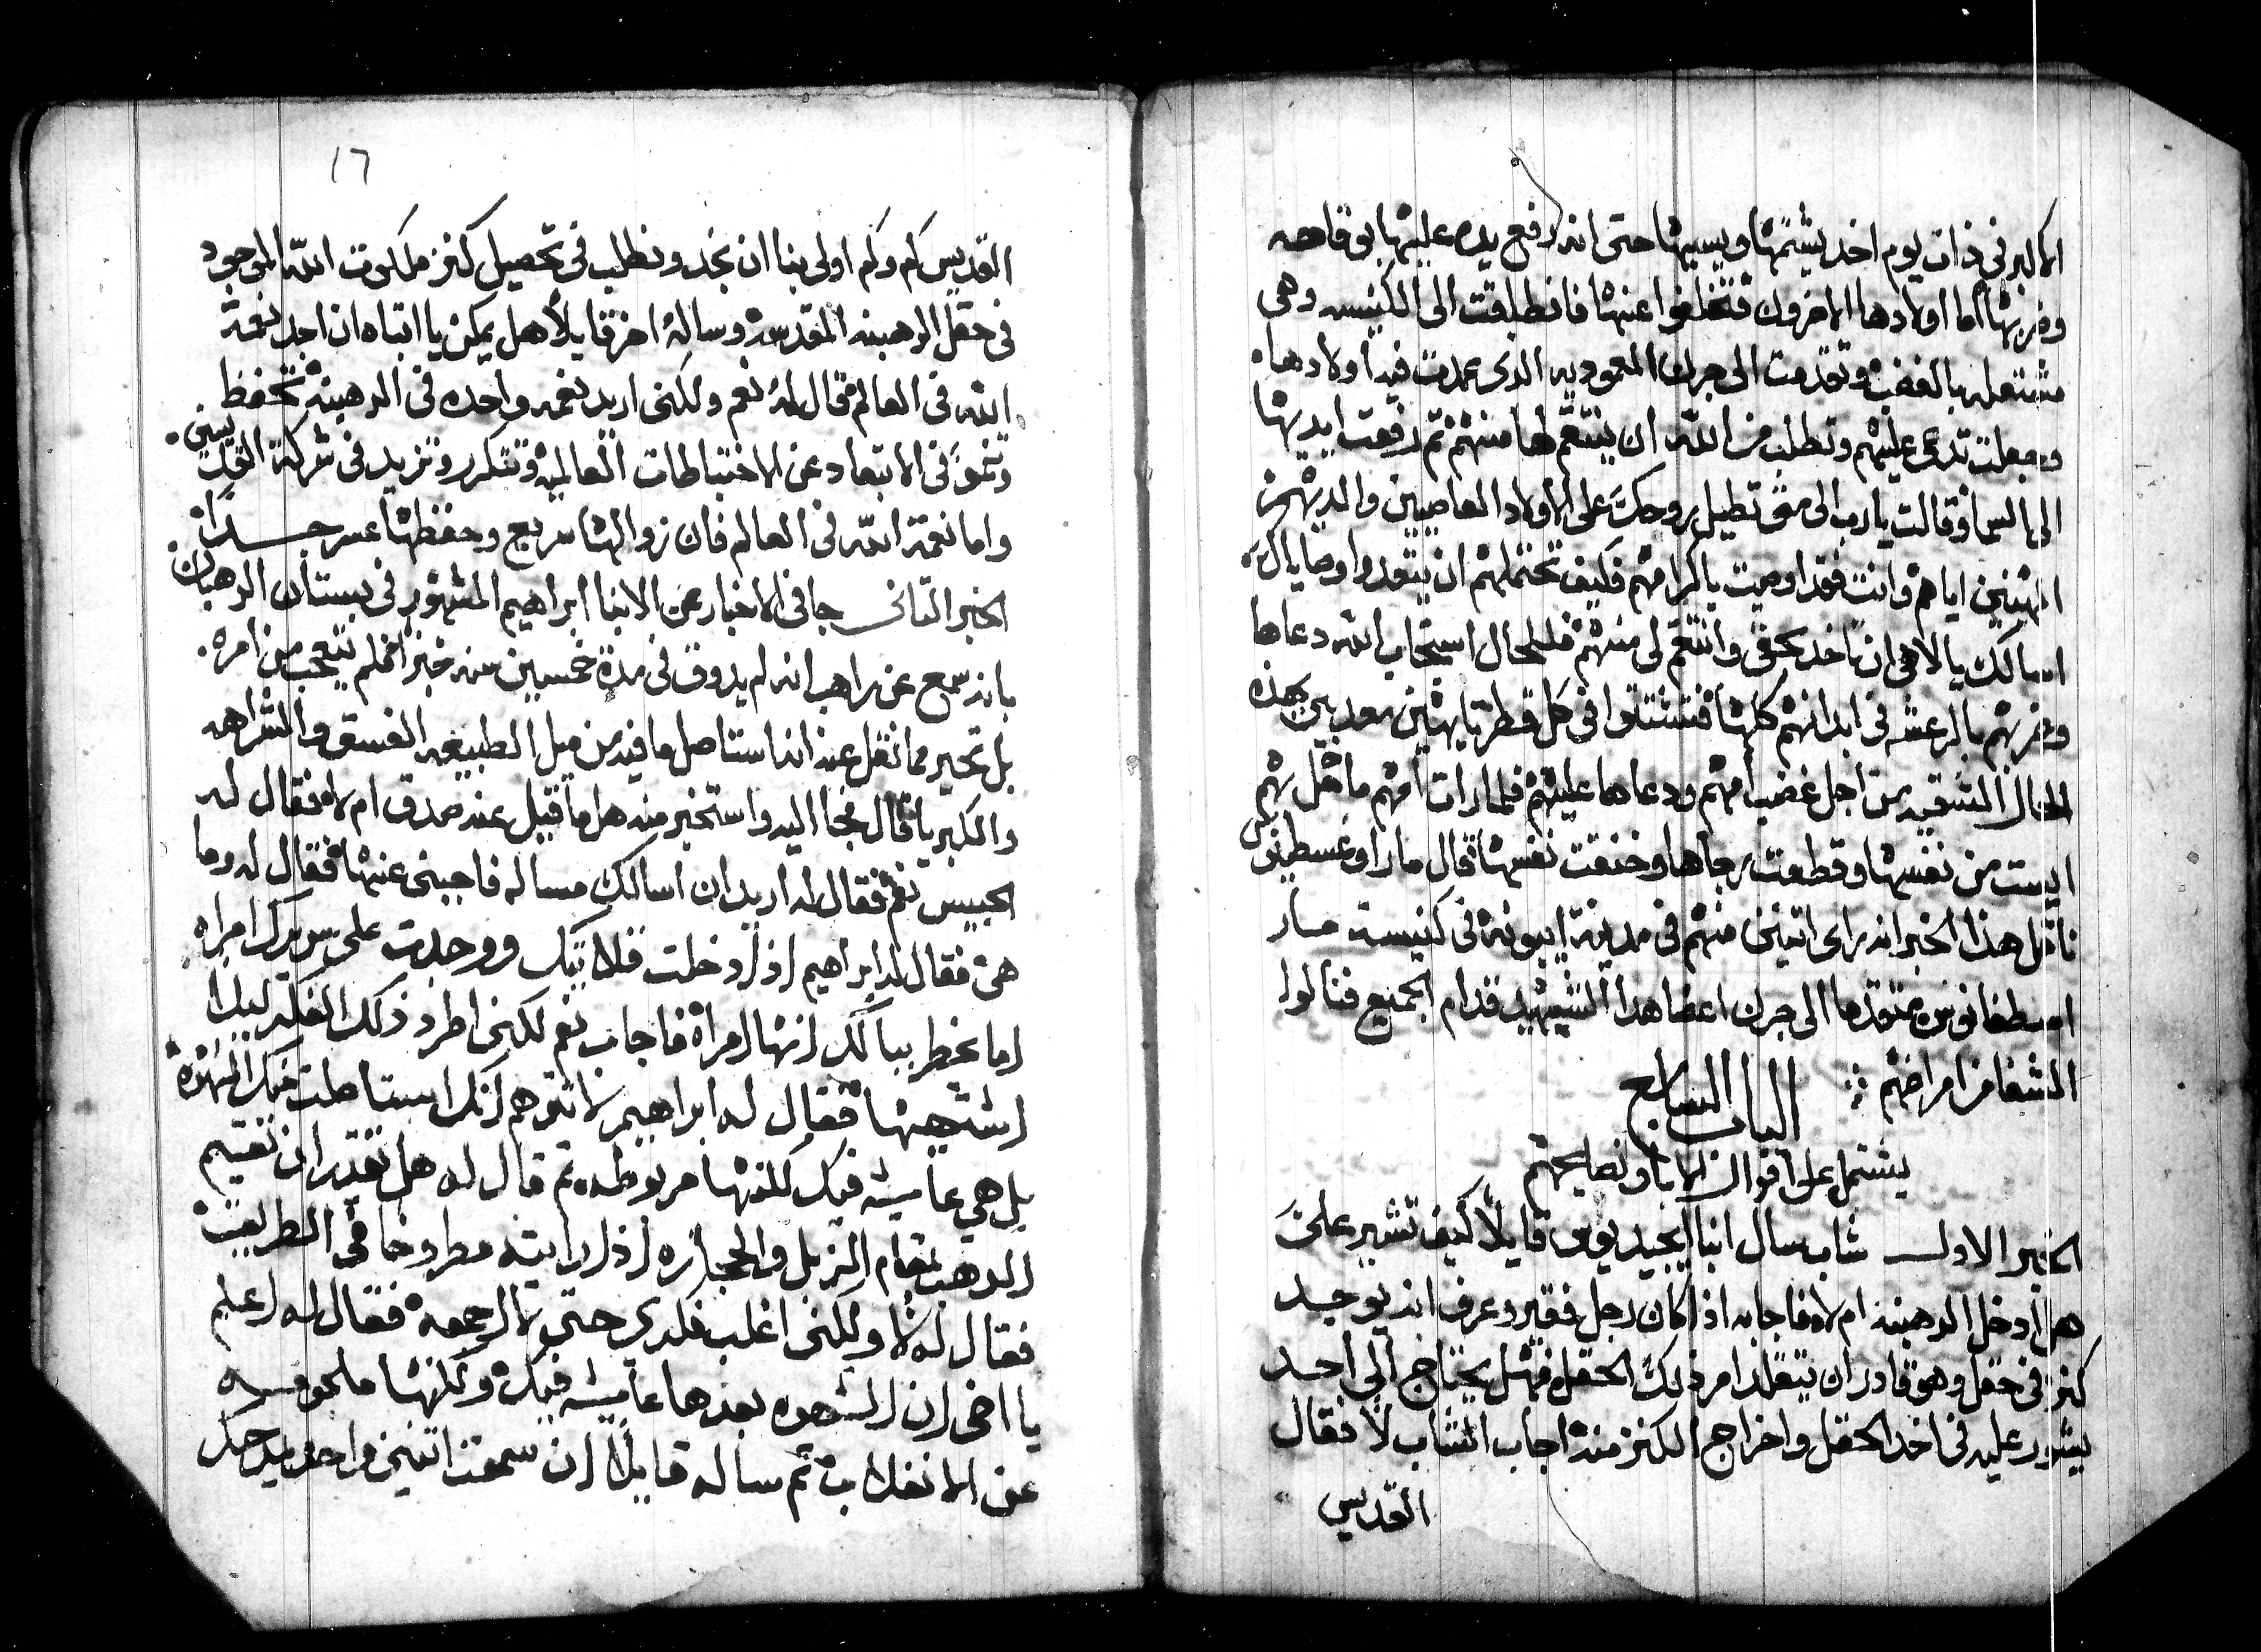 الاكبر في ذات يوم اخد يشتمها ويسبها حتى انه رفع يده عليها بوقاحه
وضربها اما اولادها الاخرون فتخلفوا عنها فانطلقت الى الكنيسه وهي
مشتعله بالغضب وتقدمت الى جرن المعموديه الذى عمدت فيه اولادها.
وجعلت تدعى عليهم وتطلب من الله ان ينتقم لها منهم ثم رفعت ايديها
الى السما وقالت يارب الى متى تطيل روحك على الاولاد العاصيين والديهم
المهنين اياهم وانت فقد اوصيت باكرامهم فكيف تحتملهم ان يتعدوا وصاياك
اسالك يالاهى ان تاخد بحقى وانتقم لى منهم فللحال استجاب الله دعاها
وضربهم بالرعشه في ابدانهم كلها فتشتتوا في كل قطر تايهين معدبين بهذه
الحال الشقيه من اجل غضب امهم ودعاها عليهم فلما رات امهم ما حل بهم
ايست من نفسها وقطعت رجاها وخنقت نفسها قال مار اوغسطينوس
ناقل هذا الخبر انه راى اتنين منهم في مدينة ايبونة في كنيسة مار
اسطفانوس تقدما الى جرن اعضا هدا الشهيد قدام الجميع فنالوا
الشفا من امراضهم ::
الباب السابع
يشتمل على اقوال الابا ونصايحهم
الخبر الاول شاب سال انبا ايجيديوس قايلاً كيف تشير على
هل ادخل الرهبنه ام لا فاجابه اذا كان رجل فقير وعرف انه يوجد
كنز في حقل وهو قادر ان يتقلد امر ذلك الحقل فهل يحتاج الى احد
يشور عليه في اخد الحقل واخراج الكنز منه اجاب الشاب لا فقال
القديس
١٦
القديس كم وكم اولى بنا ان نجد ونطلب في تحصيل كنز ملكوت الله الموجود
في حقل الرهبنه المقدسه وساله اخر قايلاً هل يمكن يا ابتاه ان اجد نعمة
الله في العالم قال له نعم ولكنى اريد نعمه واحده في الرهبنه تحفظ
وتنمو في الابتعاد عن الاختباطات العالميه وتتكرر وتزيد في شركة القديسين.
واما نعمة الله في العالم فان زوالها سريع وحفظها عسر جداً
الخبر التانى جا في الاخبار عن الانبا ابراهيم المشهور في بستان الرهبان
بانه سمع عن راهب انه لم يدوق في مدة خمسين سنه خبزاً فلم يتعجب من امره.
بل تحير مما نقل عنه انه استاصل ما فيه من ميل الطبيعه الفسق والشراهه
والكبريا قال فجا اليه واستخبر منه هل ما قيل عنه صدق ام لا فقال له
الحبيس نعم فقال له اريد ان اسالك مساله فاجبنى عنها فقال له وما
هى فقال له ابراهيم اذا دخلت قلايتك ووجدت على سريرك امراه
اما يخطر ببالك انها امراة فاجاب نعم لكنى اطرد ذلك الفكر ليلا
اشتهيها فقال له ابراهيم لا تتوهم انك استاصلت منك الشهوة
بل هي عايشه فيك لكنها مربوطه ثم قال له هل تقدر ان تقيم
الدهب مقام الزبل والحجاره اذا رايته مطروحا في الطريق
فقال له لا ولكنى اغلب فكرى حتى لا ارجعه فقال له اعلم
يا اخى ان الشهوه بعدها عايشه فيك ولكنها ملجومه
عن الانفلات ثم ساله قايلاً ان سمعت اتنين واحد يمدحك